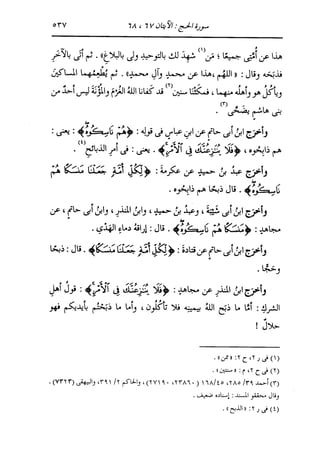 سورة الحج : الآيتان ٦٧ ، ٦٨
٥٣٧
هذا عن أُمَّتى جميعًا ؛ مَن(١) شهد لك بالتوحيدِ ولى بالبلاغِ» . ثم أتَى بالآخرِ
فذبَحه وقال : «اللهُمَّ ، هذا عن محمدٍ وآلِ محمدٍ» . ثم يُطعِمُهما المساكينَ
ويأكلُ هو وأهلُه منهما ، فمكَثنا سنينَ(٢) قد كفانا اللهُ الغُرمَ والمؤْنةَ ليس أحدٌ من
بنى هاشمٍ يضحِّى(٣) .
وأخرَج ابنُ أبى حاتمٍ عن ابنِ عباسٍ فى قولِه : ﴿هُمْ نَاسِكُوهُ﴾ : يعنى :
هم ذابحوه ، ﴿فَلَا يُنَٰزِعُنَّكَ فِى ٱلْأَمْرِ﴾ . يعنى : فى أمرِ الذبائحِ(٤) .
وأخرَج عبدُ بنُ حميدٍ عن عكرمةَ : ﴿لِكُلِّ أُمَّةٍ جَعَلْنَا مَنسَكًا هُمْ
نَاسِكُوهُ﴾ . قال ذبحًا هم ذابحوه .
وأخرَج ابنُ أبى شيبةَ ، وعبدُ بنُ حميدٍ ، وابنُ المنذرِ ، وابنُ أبى حاتمٍ ، عن
مجاهدٍ : ﴿مَنسَكًا هُمْ نَاسِكُوهُ﴾ . قال : إراقةُ دماءِ الهَدْىِ .
وأخرَج ابنُ أبى حاتمٍ عن قتادةَ : ﴿لِكُلِّ أُمَّةٍ جَعَلْنَا مَنسَكًا﴾ . قال : ذبحًا
وحجًّا .
وأخرَج ابنُ المنذرِ عن مجاهدٍ : ﴿فَلَا يُنَٰزِعُنَّكَ فِى ٱلْأَمْرِ﴾ : قولُ أهلِ
الشركِ : أمَّا ما ذبَح اللهُ بيمينِه فلا تأكُلون ، وأما ما ذبَحتُم بأيديكم فهو
حلالٌ !
(١) فى ر ٢ ، ح ٢ : «ممن» .
(٢) فى ح ٢ ، م : «سنتين» .
(٣) أحمد ٣٩/ ٢٨٥، ٤٥/ ١٦٨ (٢٣٨٦٠، ٢٧١٩٠) ، والحاكم ٢/ ٣٩١، والبيهقى (٧٣٢٣) .
وقال محققو المسند : إسناده ضعيف .
(٤) فى ر ٢ : «الذبح» .